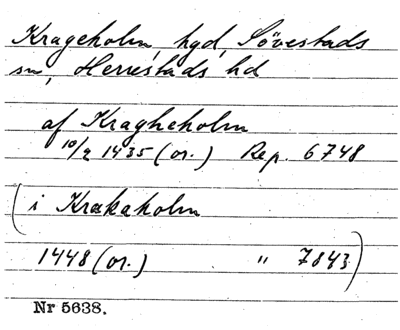 Krageholm, hgd, Sövestads
sn, Herrestads hd
af Kragheholm
10/2 1435 (or.) Rep. 6748
(i Krakaholm
1448 (or.) " 7843)
Nr 5638.